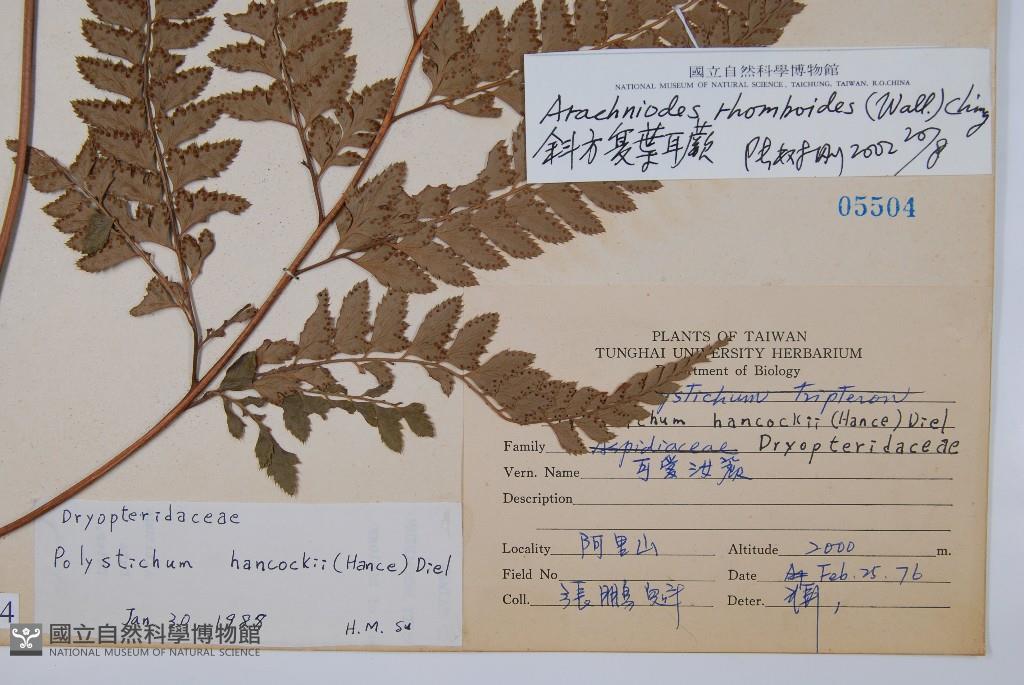 國立自然科學博物館
NATIONAL MUSEUM OF NATURAL SCIENCE, TAICHUNG, TAIWAN, R.O.CHINA
Arachniodes rhomboides (Wall.) Ching
斜方複葉耳蕨 2002 20/8
05504
PLANTS OF TAIWAN
TUNGHAI UNIVERSITY HERBARIUM
ment of Biology
ystichum tripteron
chum hancockii (Hance) Diel
Family Aspidiaceae Dryopteridaceae
Vern. Name 可愛
Description
Locality 阿里山 Altitude 2000 m.
Field No Date Feb. 25. 76
Coll. 張鵬 Deter.
Dryopteridaceae
Polystichum hancockii (Hance) Diel
Jan 30 1988 H.M. Su
4
國立自然科學博物館
NATIONAL MUSEUM OF NATURAL SCIENCE